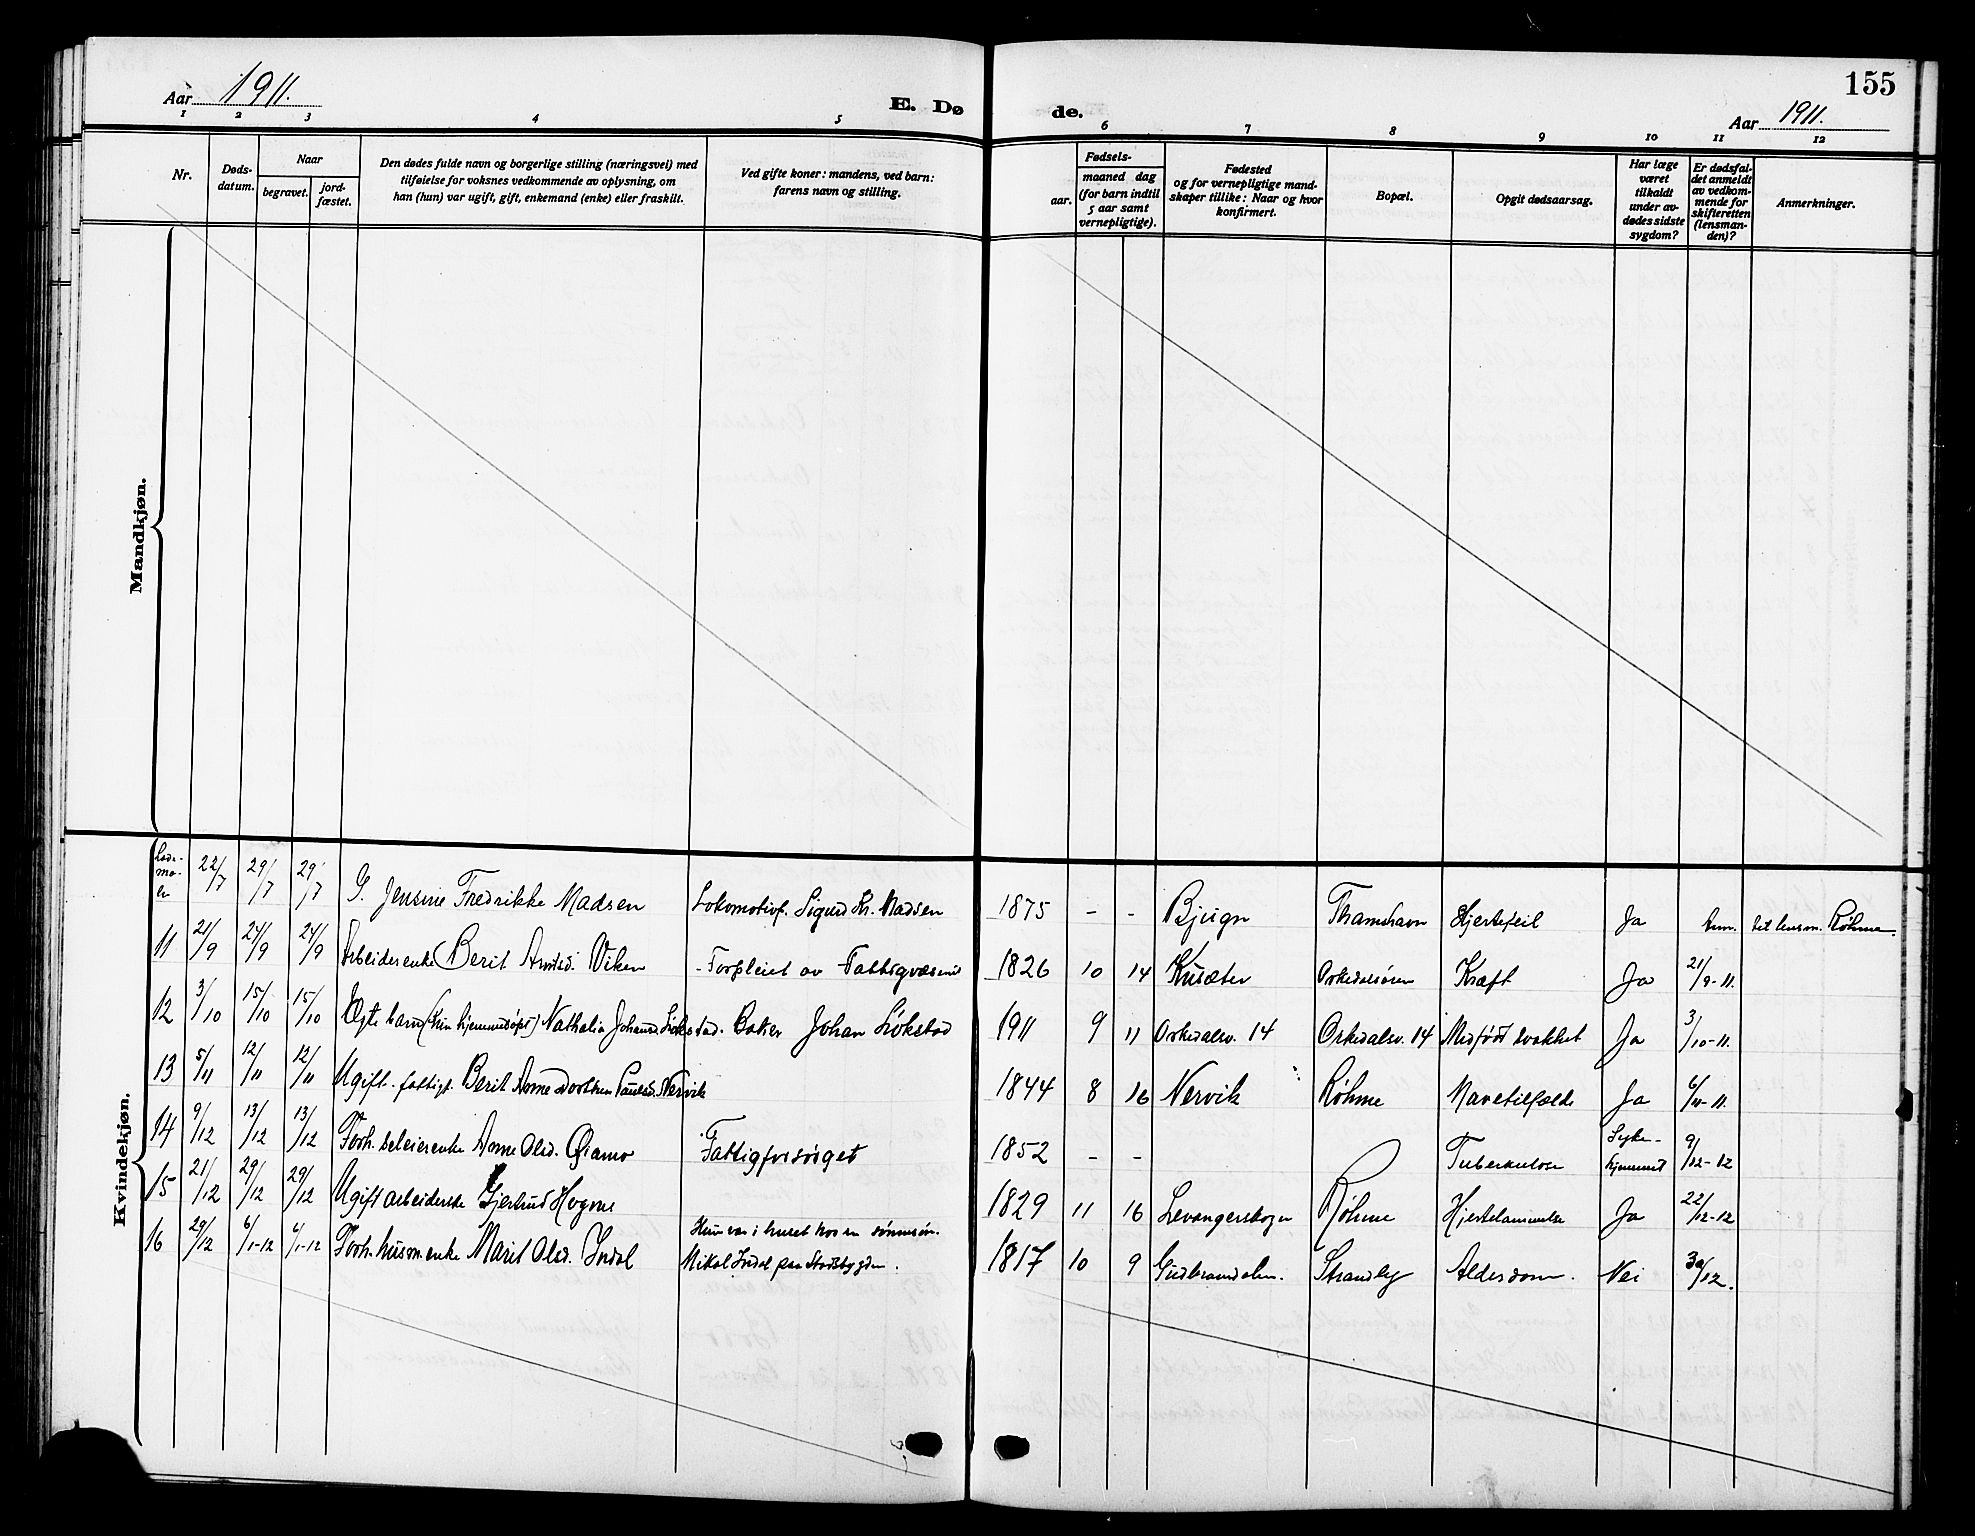 Aar 1911.
E. Dø
de.
155
Aar 1911.
1 2 3 4 5 6 7 8 9 10 11 12
Nr.
Døds-
datum.
Naar
begravet.
jord-
fæstet.
Den dødes fulde navn og borgerlige stilling (næringsvei) med
tilføielse for voksnes vedkommende av oplysning, om
han (hun) var ugift, gift, enkemand (enke) eller fraskilt.
Ved gifte koner: mandens, ved barn:
farens navn og stilling.
Fødsels-
aar.
maaned dag
(for barn indtil
5 aar samt
vernepligtige).
Fødested
og for vernepligtige mand-
skaper tillike: Naar og hvor
konfirmert.
Bopæl.
Opgit dødsaarsag.
Har læge
været
tilkaldt
under av-
dødes sidste
sygdom?
Er dødsfal-
det anmeldt
av vedkom-
mende for
skifteretten
(lensman-
den)?
Anmerkninger.
Mandkjøn.
Kvindekjøn.
22/7 29/7 29/7 G. Jensine Fredrikke Madsen Lokomotivf. Sigurd Kr. Madsen 1875 - - Bjugn Thamshavn Hjertefeil Ja Anm. til lensm. Røhme.
11 21/9 24/9 24/9 Arbeiderenke Berit Arntsd. Viken - Forpleiet av Fattigvæsenet 1826 10 14 Kusæter Orkedalsøren Kræft Ja 21/9-11.
12 3/10 15/10 15/10 Ægte barn (kun hjemmedøpt) Nathalie Johanna Løkstad. Baker Johan Løkstad 1911 9 11 Orkedalsv. 14 Orkedalsv. 14 Medfødt svakhet Ja 3/10-11.
13 5/11 12/11 12/11 Ugift. fattigl. Berit Anne Dorthea Paulsd. Nervik 1844 8 16 Nervik Røhme Mavetilfælde Ja 6/11-11.
14 9/12 13/12 13/12 Forh. seleierenke Anne Olsd. Gjamo Fattigforsørget 1852 - - Tuberkulose Syke-
hjemmet 9/12-12
15 21/12 29/12 29/12 Ugift arbeiderske Gjertrud Hogne 1829 11 16 Levangerskogn Røhme Hjertelammelse Ja 22/12-12
Hun var i huset hos en sønnesøn.
16 29/12 6/1-12 6/1-12 Forh. husm.enke Marit Olsd. Indal Mikal Indal paa Stadsbygden. 1817 10 9 Gudbrandalen. Strandly Alderdom. Nei 30/12.